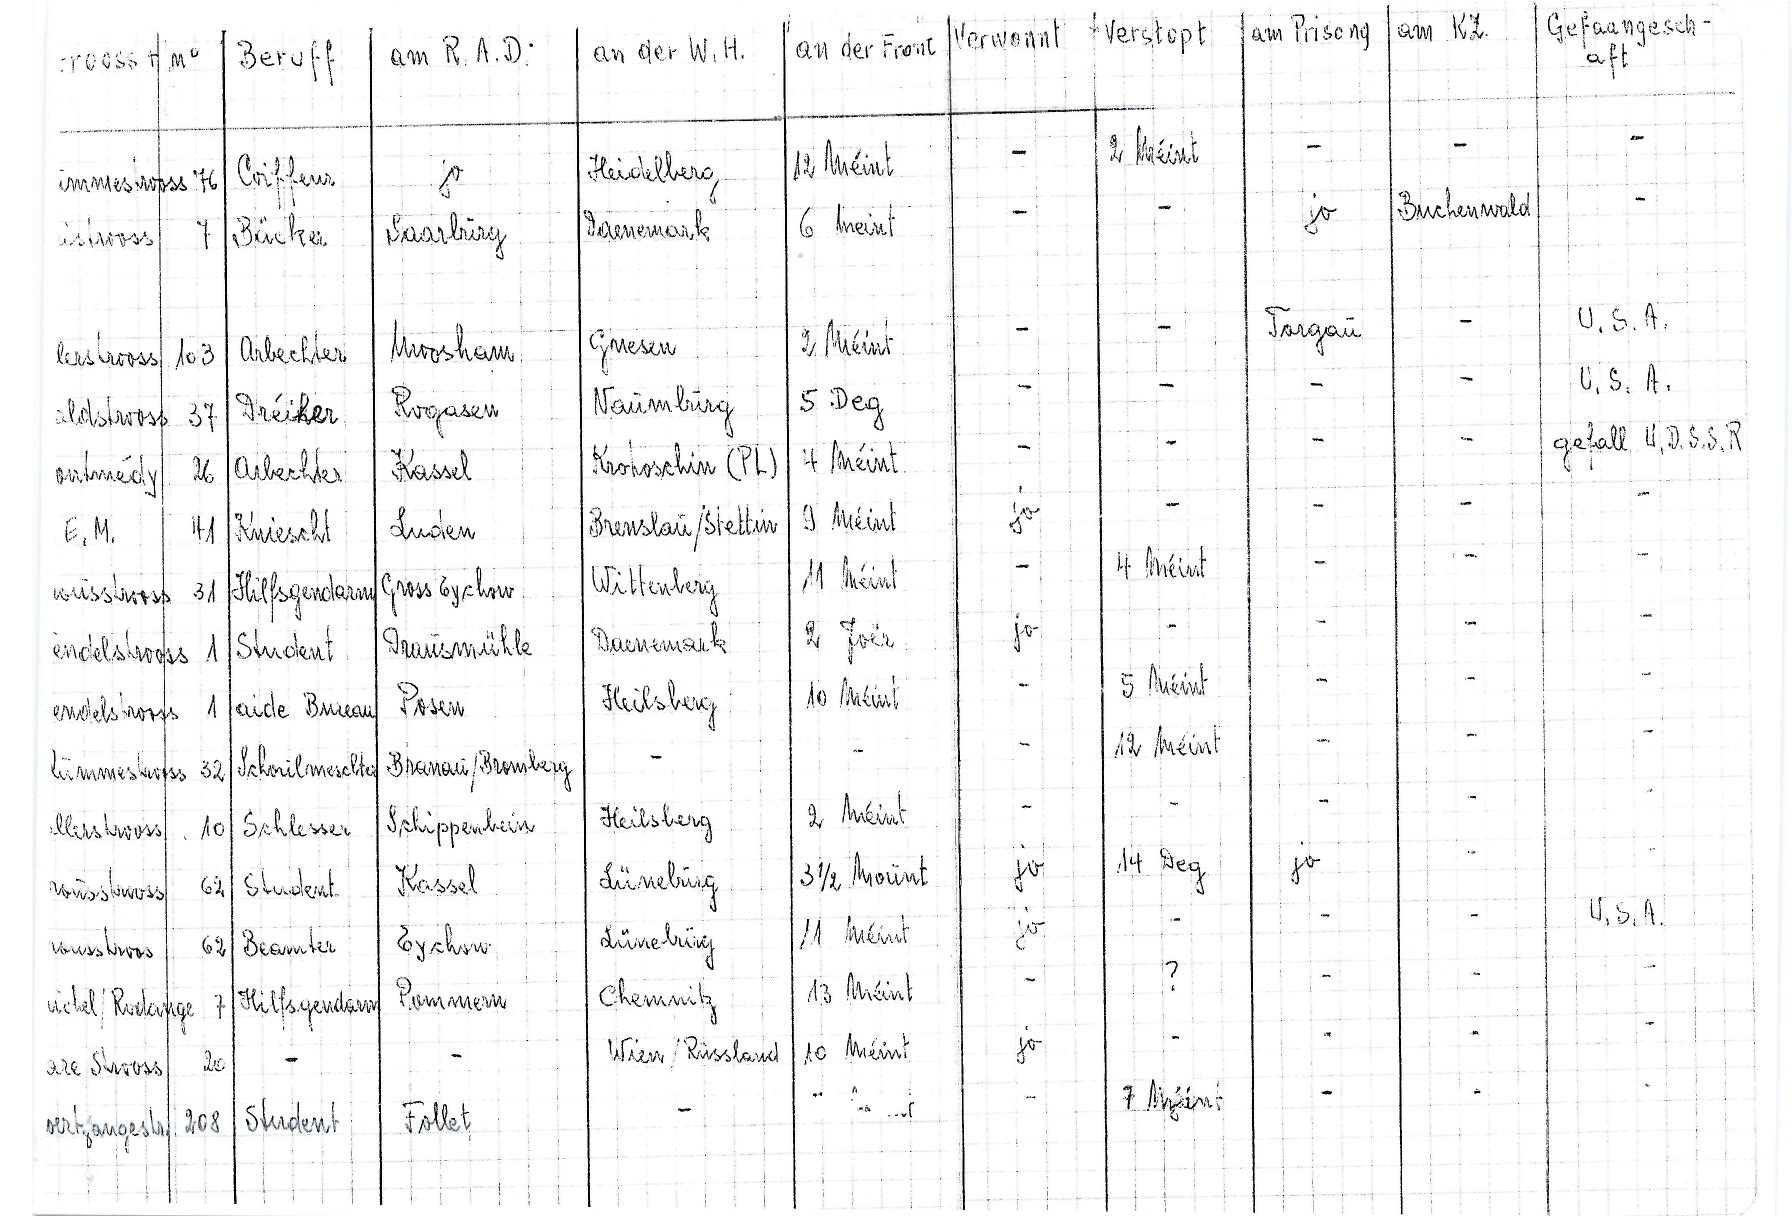 rooss + No Beruff am R.A.D. an der W.H. an der Front Verwonnt Verstopt am Prisong am KZ. Gefaangesch-
aft
immestrooss 76 Coiffeur jo Heidelberg 12 Méint - 2 Méint - - -
istrooss 7 Bäcker Saarbürg Daenemark 6 Meint - - jo Buchenwald -
lerstrooss 103 Arbechter Moosham Gnesen 2 Méint - - Torgau - U.S.A.
aldstrooss 37 Dréiher Rogasen Naumbürg 5 Deg - - - - U.S.A.
ontmédy 26 Arbechter Kassel Krotoschin (PL) 4 Méint - - - - gefall U.D.S.S.R
E.M. 41 Kniescht Luden Brenslau/Stettin 9 Méint jo - - - -
31 Hilfsgendarm Gross Tychow Wittenberg 11 Méint - 4 Méint - - -
endelstrooss 1 Student Drausmühle Daenemark 2 Joër jo - - - -
endelstrooss 1 aide Bureau Posen Heilsberg 10 Méint - 5 Méint - - -
lümmestrooss 32 Schoulmeschter Branau/Bromberg - - - 12 Méint - - -
llerstrooss 10 Schlesser Schippenbein Heilsberg 2 Méint - - - - -
rousstrooss 62 Student Kassel Lünebürg 3 1/2 Mount jo 14 Deg jo - -
rousstroos 62 Beamter Tychow Lünebürg 11 Méint jo - - - U.S.A.
/Rodange 7 Hilfsgendarm Pommern Chemnitz 13 Méint - ? - - -
are Strooss 20 - - Wien/Russland 10 Méint jo - - - -
vertzangestr. 208 Student Follet - - 7 Méint - - -